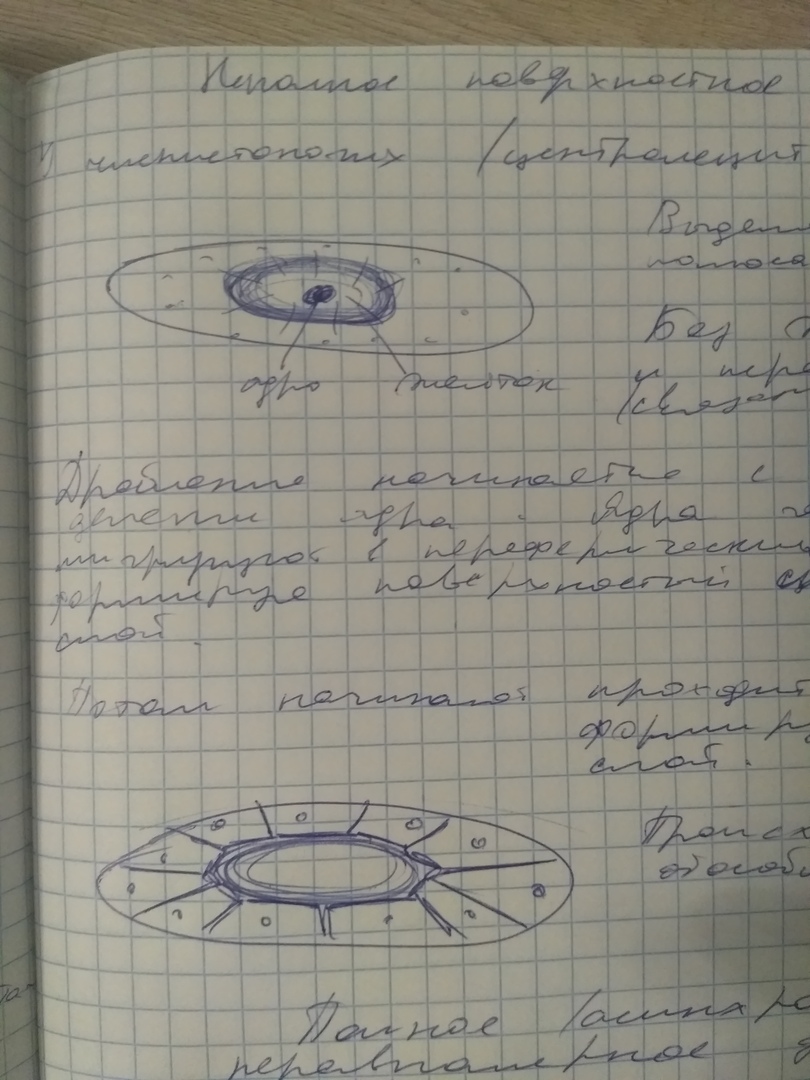 Неполное поверхностное
У членистоногих /центролецит
Выдел
полюса
Без
и пер
/связан
ядро желток
Дробление начинается с
делении ядра. Ядра
мигрируют в переферически
формируя поверхностый
слой.
Потом начинают проходит
формир
слой.
Происх
обособ
Полное /асинхро
неравномерное